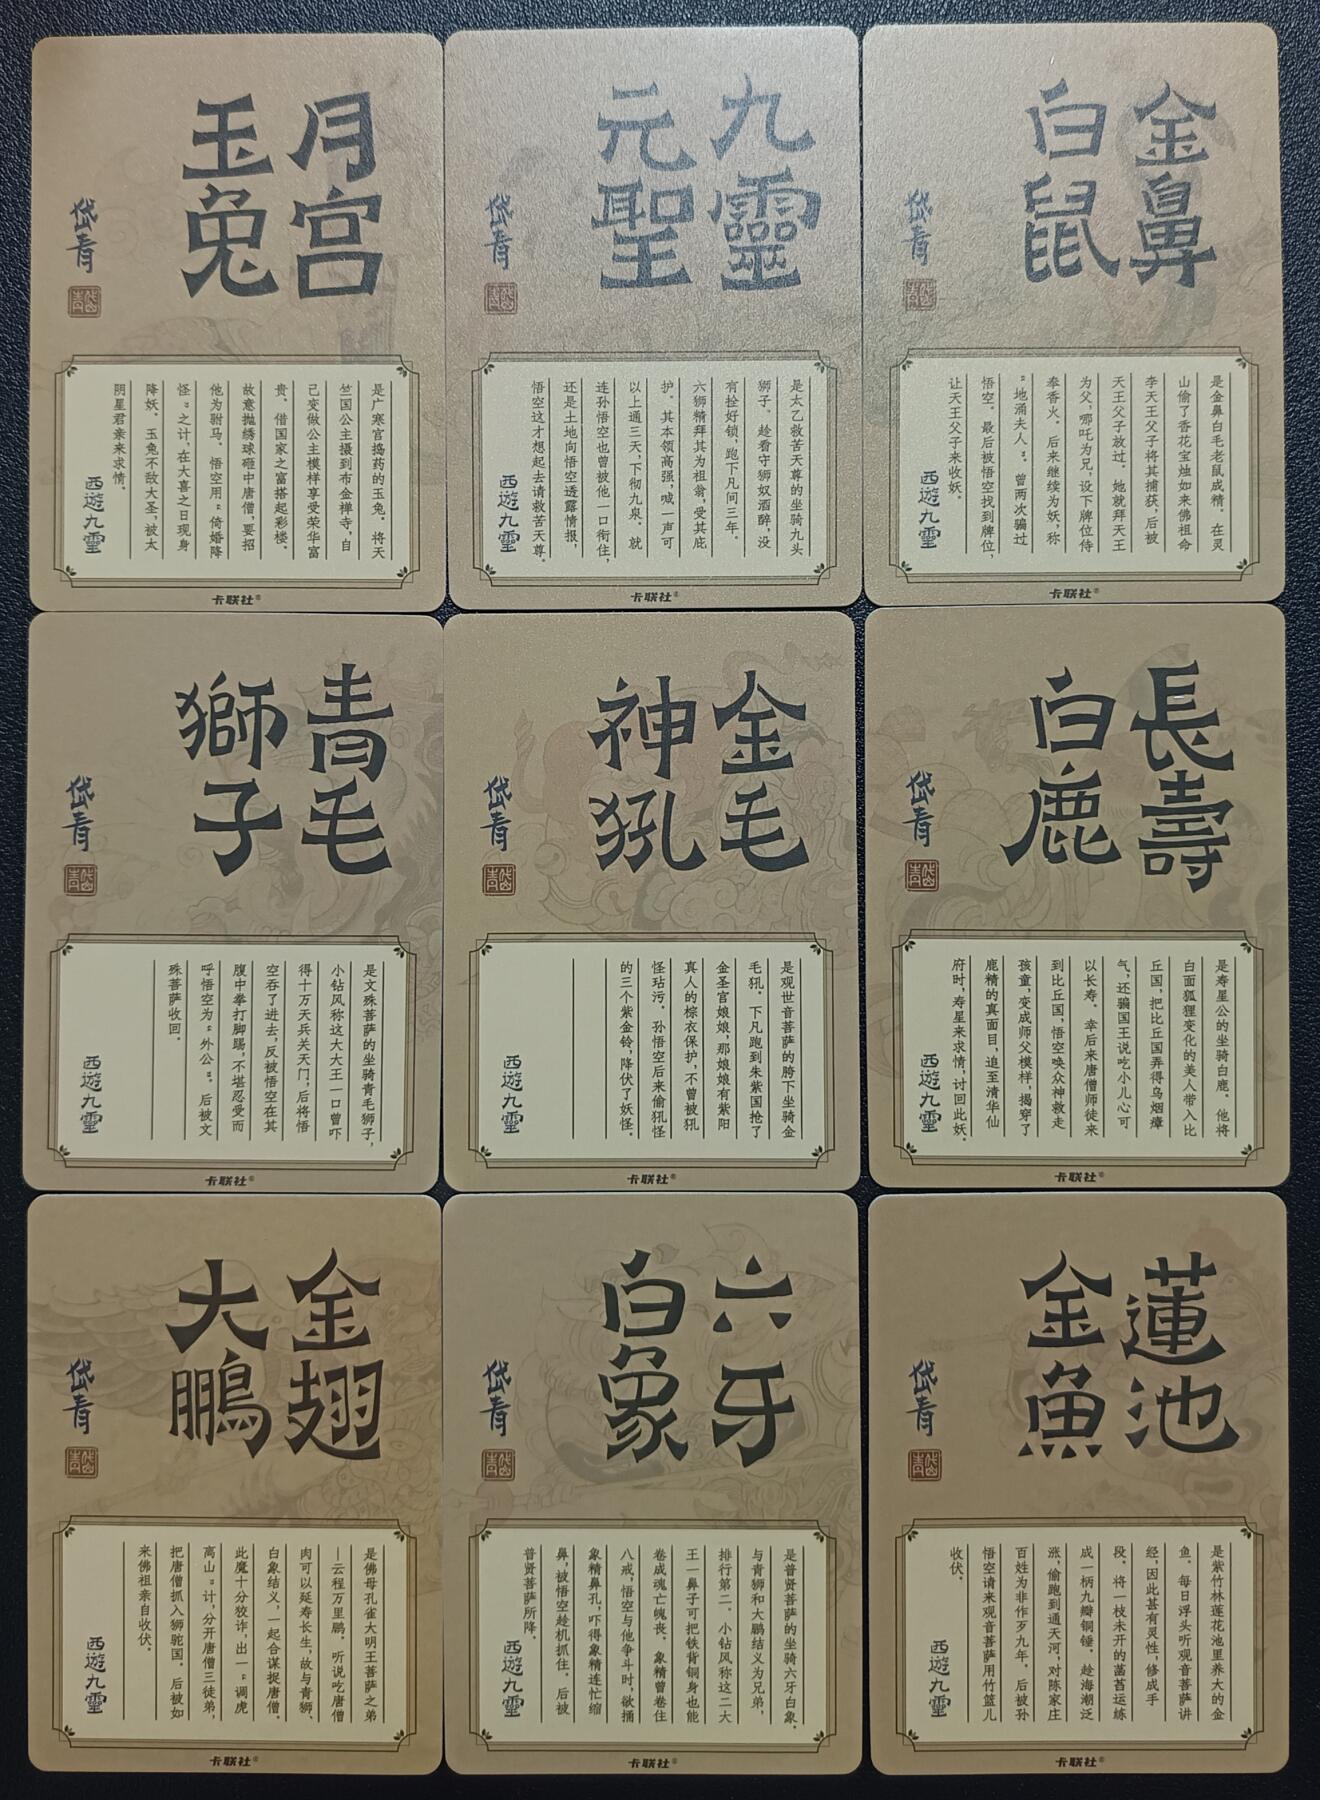 月宫
玉兔
岱青
是广寒宫捣药的玉兔．将天
竺国公主摄到布金禅寺，自
己变做公主模样享受荣华富
贵．借国家之富搭起彩楼，
故意抛绣球砸中唐僧，要招
他为驸马．悟空用“倚婚降
怪”之计，在大喜之日现身
降妖．玉兔不敌大圣，被太
阴星君亲来求情．
西遊九靈
卡联社
九靈
元聖
岱青
是太乙救苦天尊的坐骑九头
狮子．趁看守狮奴酒醉，没
有拴好锁，跑下凡间三年．
六狮精拜其为祖翁，受其庇
护．其本领高强，喊一声可
以上通三天，下彻九泉．就
连孙悟空也曾被他一口衔住，
还是土地向悟空透露情报，
悟空这才想起去请救苦天尊．
西遊九靈
卡联社
金鼻
白鼠
岱青
是金鼻白毛老鼠成精．在灵
山偷了香花宝烛如来佛祖命
李天王父子将其捕获，后被
天王父子放过．她就拜天王
为父，哪吒为兄，设下牌位侍
奉香火．后来继续为妖，称
“地涌夫人”．曾两次骗过
悟空．最后被悟空找到牌位，
让天王父子来收妖．
西遊九靈
卡联社
青毛
獅子
岱青
是文殊菩萨的坐骑青毛狮子，
小钻风称这大大王一口曾吓
得十万天兵关天门，后将悟
空吞了进去，反被悟空在其
腹中拳打脚踢，不堪忍受而
呼悟空为“外公”．后被文
殊菩萨收回．
西遊九靈
卡联社
金毛
神犼
岱青
是观世音菩萨的胯下坐骑金
毛犼．下凡跑到朱紫国抢了
金圣宫娘娘，那娘娘有紫阳
真人的棕衣保护，不曾被犼
怪玷污．孙悟空后来偷犼怪
的三个紫金铃，降伏了妖怪．
西遊九靈
卡联社
長壽
白鹿
岱青
是寿星公的坐骑白鹿．他将
白面狐狸变化的美人带入比
丘国，把比丘国弄得乌烟瘴
气，还骗国王说吃小儿心可
以长寿．幸后来唐僧师徒来
到比丘国，悟空唤众神救走
孩童，变成师父模样，揭穿了
鹿精的真面目，追至清华仙
府时，寿星来求情，讨回此妖．
西遊九靈
卡联社
金翅
大鵬
岱青
是佛母孔雀大明王菩萨之弟
—云程万里鹏．听说吃唐僧
肉可以延寿长生，故与青狮、
白象结义，一起合谋捉唐僧．
此魔十分狡诈，出一“调虎
高山”计，分开唐僧三徒弟，
把唐僧抓入狮驼国．后被如
来佛祖亲自收伏．
西遊九靈
卡联社
六牙
白象
岱青
是普贤菩萨的坐骑六牙白象．
与青狮和大鹏结义为兄弟，
排行第二．小钻风称这二大
王一鼻子可把铁背铜身也能
卷成魂亡魄丧．象精曾卷住
八戒，悟空与他争斗时，欲捅
象精鼻孔，吓得象精连忙缩
鼻，被悟空趁机抓住．后被
普贤菩萨所降．
西遊九靈
卡联社
蓮池
金魚
岱青
是紫竹林莲花池里养大的金
鱼．每日浮头听观音菩萨讲
经，因此甚有灵性，修成手
段．将一枝未开的菡萏运练
成一柄九瓣铜锤．趁海潮泛
涨，偷跑到通天河，对陈家庄
百姓为非作歹九年．后被孙
悟空请来观音菩萨用竹篮儿
收伏．
西遊九靈
卡联社